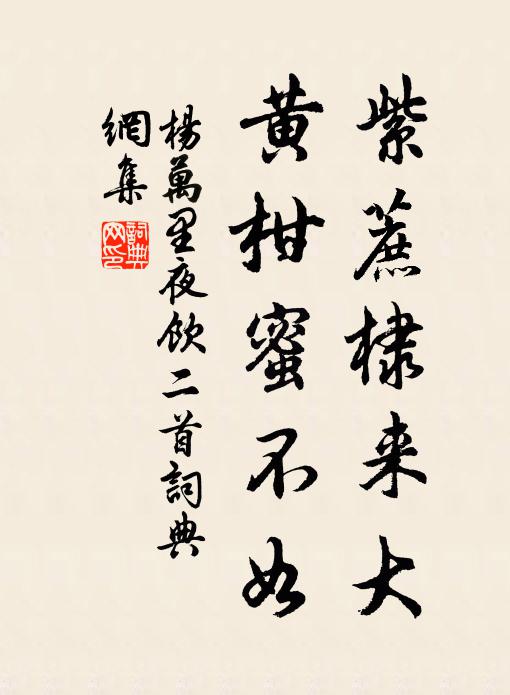 紫蔗棣来大
黄柑蜜不如
楊萬里夜飲二首詞典
網集
詞典网印